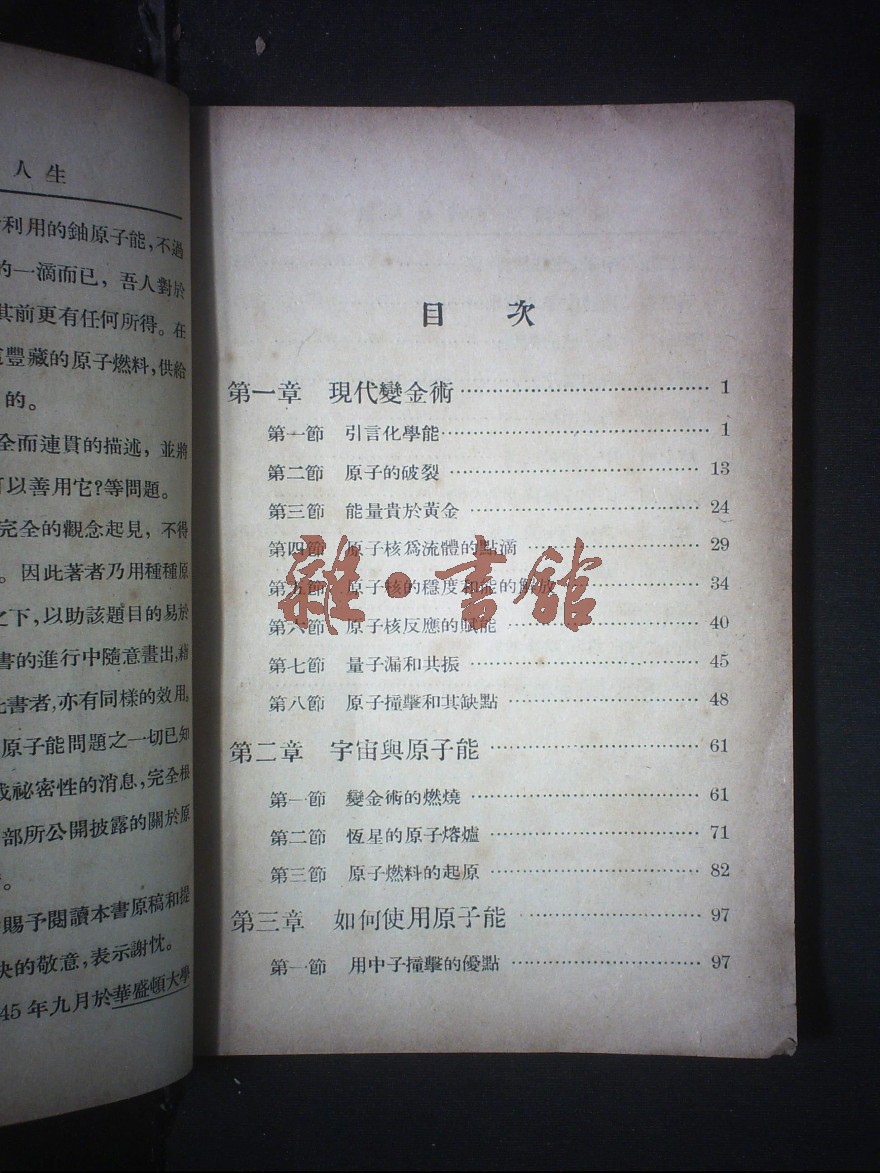 人生
利用的鈾原子能,不過
的一滴而已,吾人對於
其前更有任何所得。在
豐藏的原子燃料,供給
的。
全而連貫的描述,並將
可以善用它?等問題。
完全的觀念起見,不得
。因此著者乃用種種原
之下,以助該題目的易於
書的進行中隨意畫出,藉
此書者,亦有同樣的效用。
原子能問題之一切已知
或祕密性的消息,完全根
部所公開披露的關於原
。
賜予閱讀本書原稿和提
快的敬意,表示謝忱。
45年九月於華盛頓大學
目次
第一章 現代變金術 1
第一節 引言化學能 1
第二節 原子的破裂 13
第三節 能量貴於黃金 24
第四節 原子核為流體的點滴 29
第五節 原子核的穩度和能的解放 34
第六節 原子核反應的賦能 40
第七節 量子漏和共振 45
第八節 原子撞擊和其缺點 48
第二章 宇宙與原子能 61
第一節 變金術的燃燒 61
第二節 恆星的原子熔爐 71
第三節 原子燃料的起原 82
第三章 如何使用原子能 97
第一節 用中子撞擊的優點 97
雜·書館